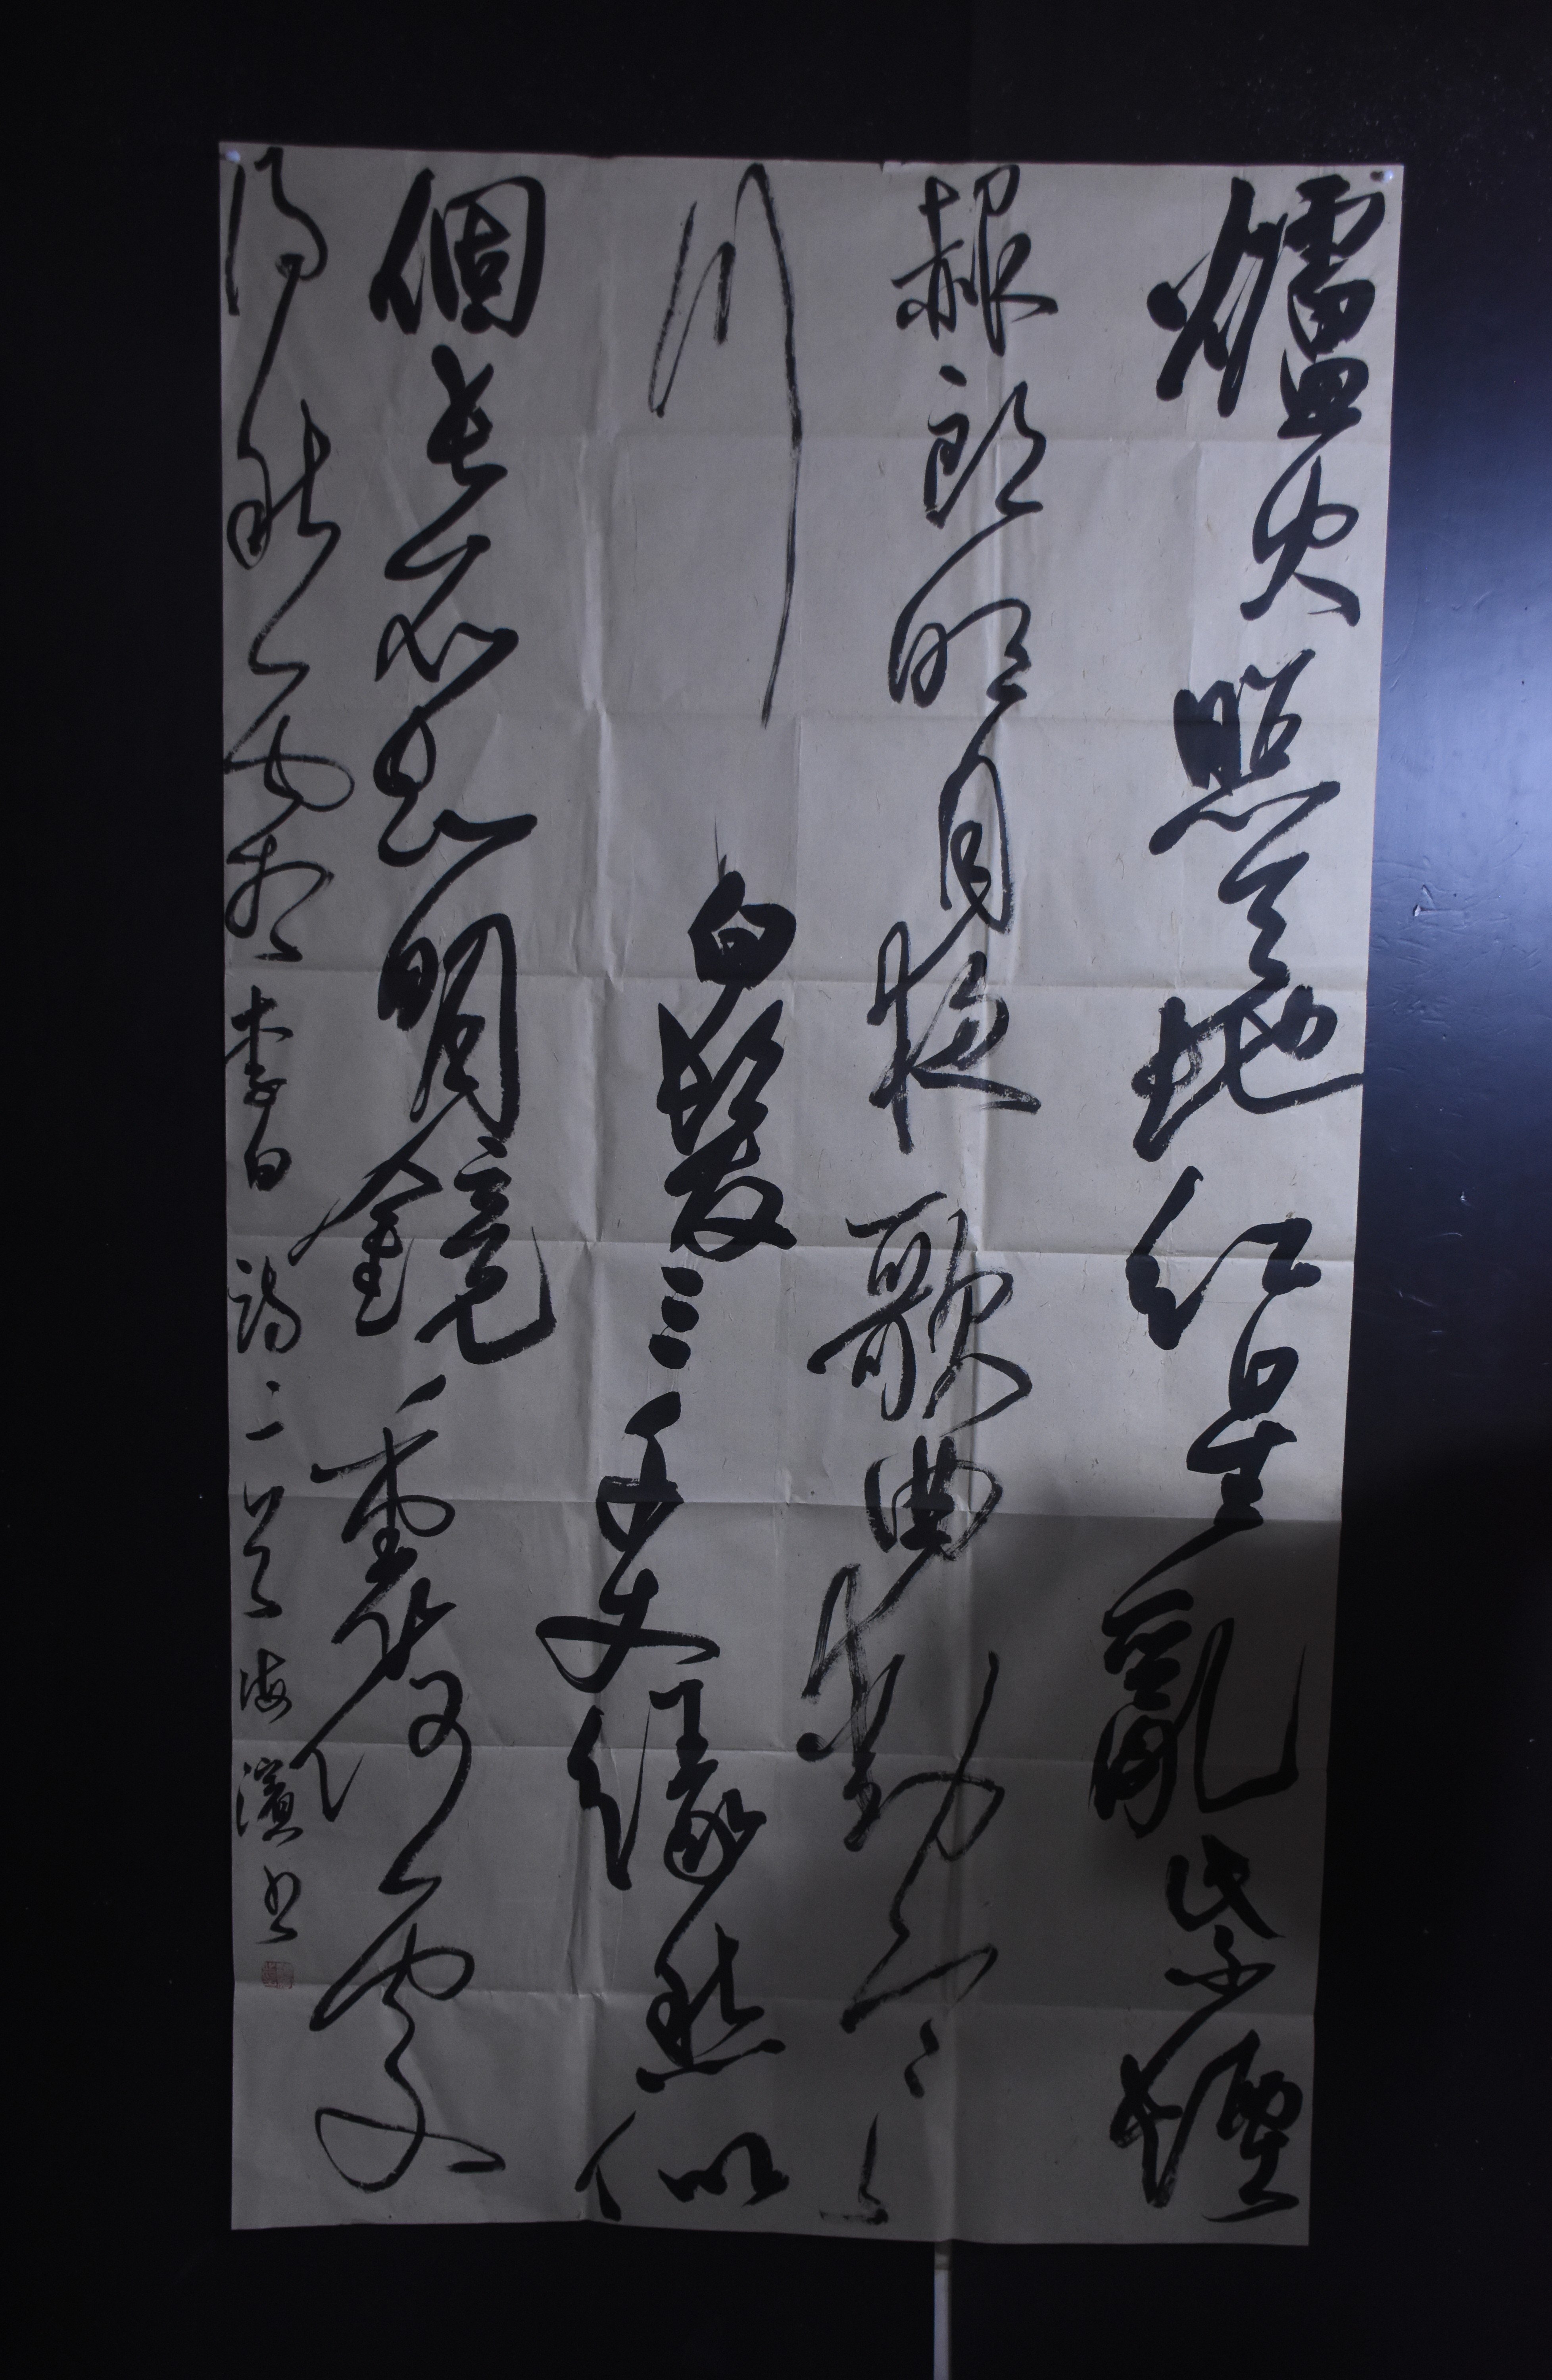 爐火照天地紅星亂紫煙
赧郎明月夜歌曲動寒
川白髮三千丈緣愁似
個長不知明鏡裏何處
得秋霜李白詩二首海濱書